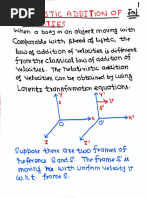 RELATIVISTIC ADDITION OF
VELOCITIES
When a body or an object moving with
Comparable with speed of light, the
law of addition of velocities is different
from the classical law of addition of
velocities. The relativistic addition
of velocities can be obtained by using
Lorentz transformation equations.
Y
Y'
S
S'
O
X
X'
Z
Suppose there are two frames of
reference S and S'. The frame S' is
moving with uniform velocity v
w.r.t. frame S.